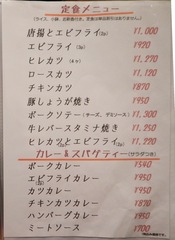 定食メニュー
(ライス、小鉢、お新香付き、定食は単品割引はありません。)
唐揚とエビフライ(2p) ¥1,000
エビフライ(3p) ¥920
ヒレカツ(4ヶ) ¥1,270
ロースカツ ¥1,120
チキンカツ ¥870
豚しょうが焼き ¥950
ポークソテー(チーズ、デミソース) ¥1,300
牛レバースタミナ焼き ¥1,250
ヒレカツとエビフライ(2p) ¥1,220
カレー&スパゲティー(サラダつき)
ポークカレー ¥540
エビフライカレー(3p) ¥950
カツカレー ¥950
チキンカツカレー ¥870
ハンバーグカレー ¥950
ミートソース ¥700